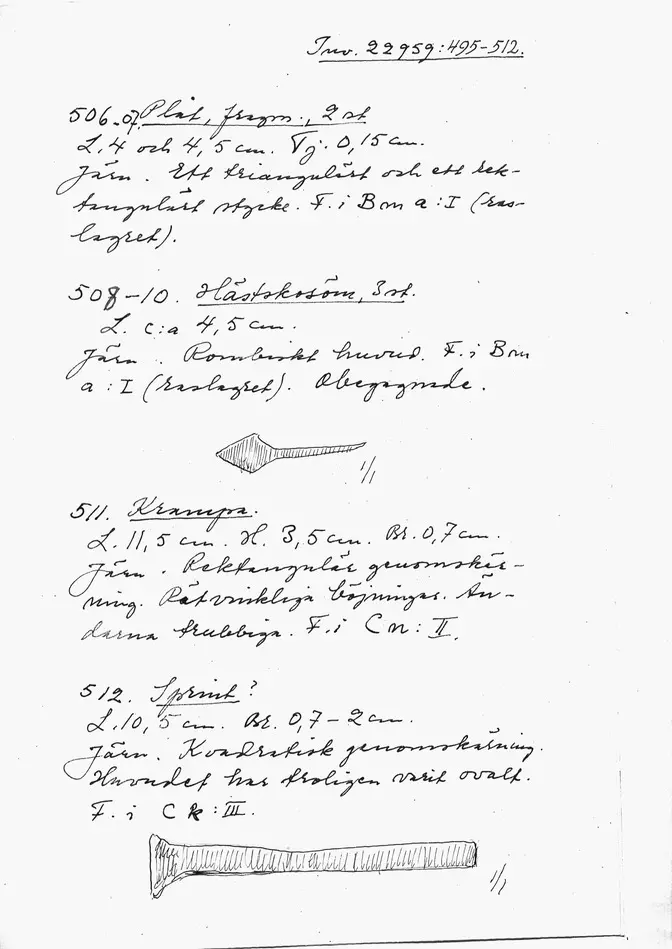 Inv. 22959:495-512.
506-07. Plåt, fragm., 2 st
L. 4 och 4,5 cm. Tj. 0,15 cm.
Järn. Ett triangulärt och ett rek-
tangulärt stycke. F. i B m a:I (ras-
lagret).
508-10. Hästskosöm, 3 st.
L. c:a 4,5 cm.
Järn. Rombiskt huvud. F. i B m
a:I (raslagret). Obegagnade.
1/1
511. Krampa.
L. 11,5 cm. H. 3,5 cm. Br. 0,7 cm.
Järn. Rektangulär genomskär-
ning. Rätvinkliga böjningar. Än-
darna trubbiga. F. i C n:II.
512. Sprint?
L. 10,5 cm. Br. 0,7-2 cm.
Järn. Kvadratisk genomskärning.
Huvudet har troligen varit ovalt.
F. i C k:III.
1/1